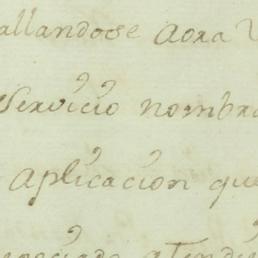 allandose aora
Servicio nombra
aplicacion que
atendi